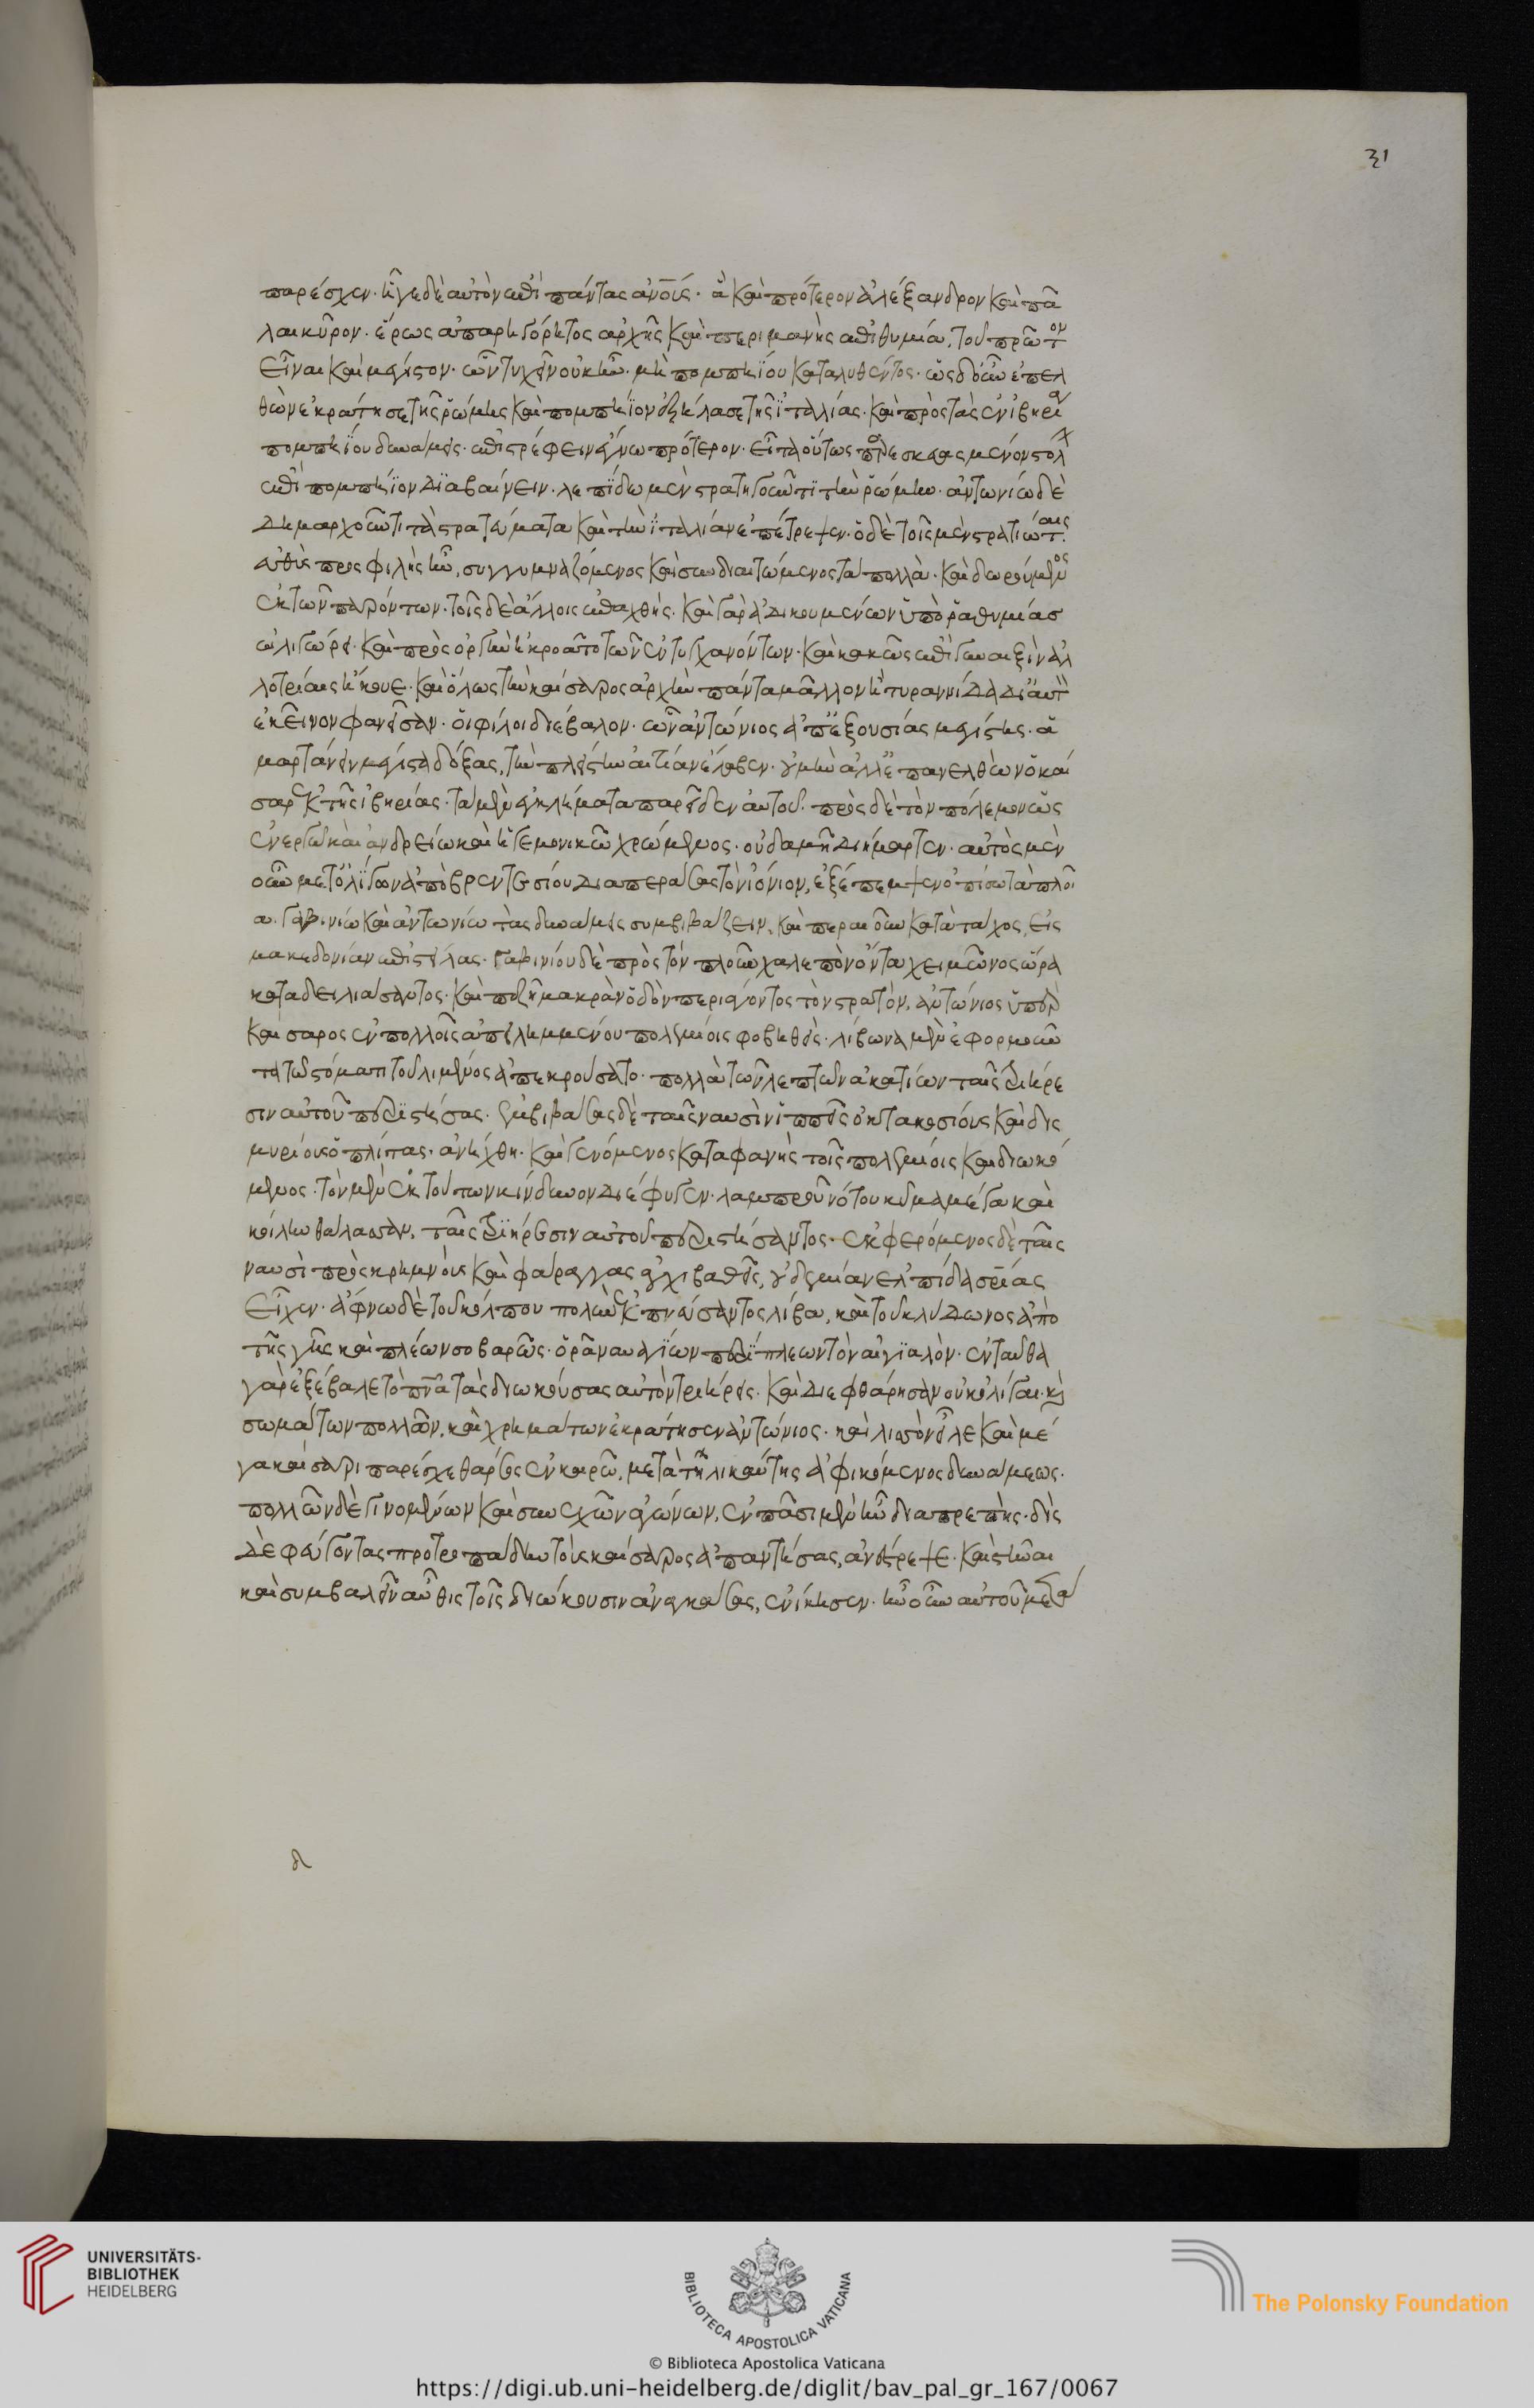 παρέσχεν. ἦγε δὲ αὐτὸν ἐπὶ πάντας ἀνους. ἃ καὶ πρότερον ἀλέξανδρον καὶ πά
λαι κῦρον. ἔρως ἀπαρηγόρητος ἀρχῆς καὶ περιμανὴς ἐπιθυμία, τοῦ πρῶτον
εἶναι καὶ μέγιστον. ὧν τυχεῖν οὐκ ἦν. μὴ πομπηίου καταλυθέντος. ὡς δ' οὖν ἐπελ
θὼν ἐκράτησε τῆς ῥώμης καὶ πομπήϊον ἐξήλασε τῆς ἰταλίας. καὶ πρὸς τὰς ἐν ἰβηρία
πομπηΐου δυνάμεις. ἐπιστρέφειν ἔγνω πρότερον. εἶτα οὕτως παρεσκευασμένον στόλ
ἐπὶ πομπήϊον διαβαίνειν. λεπίδω μὲν στρατηγοῦντι τὴν ῥώμην. ἀντωνίω δὲ
δημαρχοῦντι τὰ στρατεύματα καὶ τὴν ἰταλίαν ἐπέτρεψεν. ὁ δὲ τοῖς μὲν στρατιώταις
εὐθὺς προσφιλὴς ἦν, συγγυμναζόμενος καὶ συνδιαιτώμενος τὰ πολλὰ. καὶ δωρούμενος
ἐκ τῶν παρόντων. τοῖς δὲ ἄλλοις ἐπαχθής. καὶ γὰρ ἀδικουμένων ὑπὸ ῥαθυμίας
ὠλιγώρει. καὶ πρὸς ὀργὴν ἠκροᾶτο τῶν ἐντυγχανόντων. καὶ κακῶς ἐπὶ γυναιξὶν ἀλ
λοτρίαις ἤκουε. καὶ ὅλως τὴν καίσαρος ἀρχὴν πάντα μᾶλλον ἢ τυραννίδα δι' αὐτὸν
ἐκεῖνον φανεῖσαν. οἱ φίλοι διέβαλον. ὧν ἀντώνιος ἀπ' ἐξουσίας μεγίστης. ἁ
μαρτάνειν μέγιστα δόξας, τὴν πλείστην αἰτίαν ἔλαβεν. οὐ μὴν ἀλλ' ἐπανελθὼν ὁ καί
σαρ ἐκ τῆς ἰβηρίας. τὰ μὲν ἐγκλήματα παρεῖδεν αὐτοῦ. πρὸς δὲ τὸν πόλεμον ὡς
ἐνεργῶ καὶ ἀνδρείω καὶ ἡγεμονικῶ χρώμενος. οὐδαμῆ διήμαρτεν. αὐτὸς μὲν
οὖν μετ' ὀλίγων ἀπὸ βρεντεσίου διαπεράσας τὸν ἰόνιον, ἐξέπεμψεν ὀπίσω τὰ πλοῖ
α. γαβινίω καὶ ἀντωνίω τὰς δυνάμεις συμβιβάζειν. καὶ περαιοῦν κατὰ τάχος, εἰς
μακεδονίαν ἐπιστείλας. γαβινίου δὲ πρὸς τὸν πλοῦν χαλεπὸν ὄντα χειμῶνος ὥρα
καταδειλιάσαντος. καὶ πεζῆ μακρὰν ὁδὸν περιάγοντος τὸν στρατὸν, ἀντώνιος ὑπὲρ
καίσαρος ἐν πολλοῖς ἀπειλημμένου πολεμίοις φοβηθείς. λίβωνα μὲν ἐφορμοῦν
τα τῶ στόματι τοῦ λιμένος ἀπεκρούσατο. πολλὰ τῶν λεπτῶν ἀκατίων ταῖς τριήρε
σιν αὐτοῦ περιστήσας. ἐμβιβάσας δὲ ταῖς ναυσὶν ἱππεῖς ὀκτακοσίους καὶ δις
μυρίους ὁπλίτας. ἀνήχθη. καὶ γενόμενος καταφανὴς τοῖς πολεμίοις καὶ διωκό
μενος. τὸν μὲν ἐκ τούτων κίνδυνον διέφυγεν. λαμπροῦ νότου κῦμα μέγα καὶ
κοίλην θάλασσαν, ταῖς τριήρεσιν αὐτοῦ περιστήσαντος. ἐκφερόμενος δὲ ταῖς
ναυσὶ πρὸς κρημνοὺς καὶ φάραγγας ἀγχιβαθεῖς, οὐδεμίαν ἐλπίδα σριας
εἶχεν. ἄφνω δὲ τοῦ κόλπου πολὺν ἐκπνεύσαντος λίβα, καὶ τοῦ κλύδωνος ἀπὸ
τῆς γῆς καὶ πλέων σοβαρῶς. ὁρᾶ ναυαγίων περίπλεων τὸν αἰγιαλόν. ἐνταῦθα
γὰρ ἐξέβαλε τὸ πνα τὰς διωκούσας αὐτὸν τριήρεις. καὶ διεφθάρησαν οὐκ ὀλίγαι. καὶ
σωμάτων πολλῶν, καὶ χρημάτων ἐκράτησεν ἀντώνιος. καὶ λισσὸν εἷλε καὶ μέ
γα καίσαρι παρέσχε θάρσος ἐν καιρῶ, μετὰ τηλικαύτης ἀφικόμενος δυνάμεως.
πολλῶν δὲ γινομένων καὶ συνεχῶν ἀγώνων, ἐν πᾶσι μὲν ἦν διαπρεπὴς. δὶς
δὲ φεύγοντας προτροπάδην τοὺς καίσαρος ἀπαντήσας, ἀνέστρεψε. καὶ στῆναι
καὶ συμβαλεῖν αὖθις τοῖς διώκουσιν ἀναγκάσας, ἐνίκησεν. ἦν οὖν αὐτοῦ μετὰ
31
UNIVERSITÄTS-
BIBLIOTHEK
HEIDELBERG
BIBLIOTECA APOSTOLICA VATICANA
The Polonsky Foundation
© Biblioteca Apostolica Vaticana
https://digi.ub.uni-heidelberg.de/diglit/bav_pal_gr_167/0067